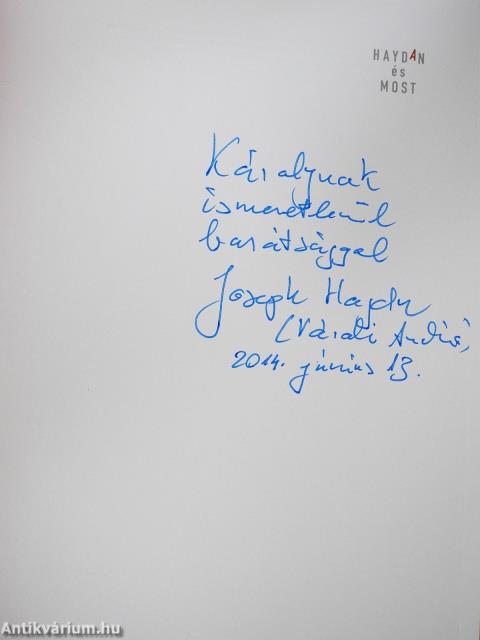 HAYDAN
és
MOST
Károlynak
ismeretlenül
barátsággal
Joseph Haydn
(Váradi András)
2014. június 13.
Antikvárium.hu